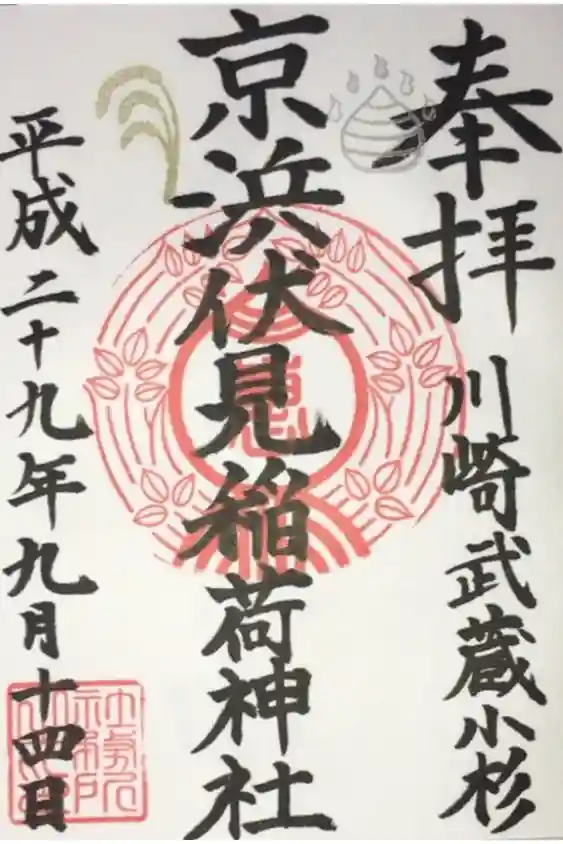 奉拝
川崎武蔵小杉
京浜伏見稲荷神社
平成二十九年九月十四日
社務所